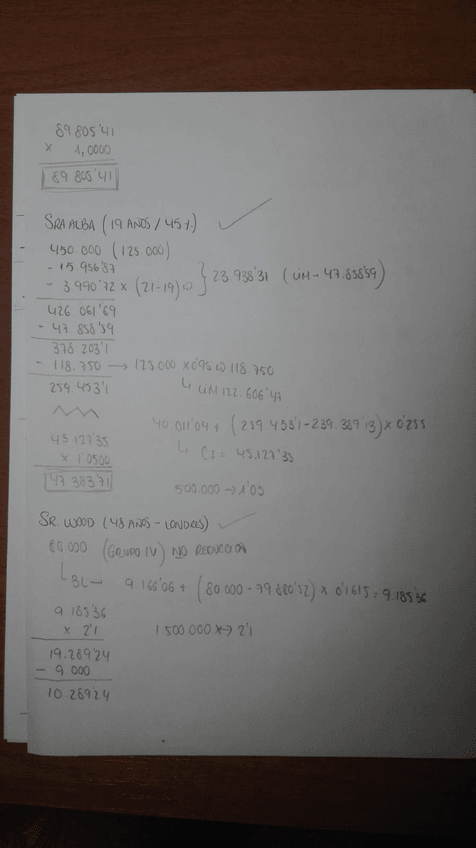 89 805'41
x 1,0000
89 805'41
SRA ALBA (19 AÑOS / 45%)
450.000 (125.000)
- 15 956'87
- 3 990'72 x (21-19) } 23.938'31 (LIM - 47.858'59)
426 061'69
- 47.858'59
378 203'1
- 118.750 → 125 000 x 0'95 ⇨ 118.750
259.453'1
↳ LIM 122.606'47
40.011'04 + (259.453'1 - 239.389'13) x 0'255
45.127'35
↳ CI = 45.127'35
x 1'0500
47 383'71
500.000 → 1'05
SR. WOOD (48 AÑOS - LONDRES)
80.000 (GRUPO IV) NO REDUCCIÓN
↳ BL → 9.166'06 + (80.000 - 79.880'52) x 0'1615 = 9.185'36
9 185'36
x 2'1
1.500.000 → 2'1
19.289'24
- 9.000
10.289'24